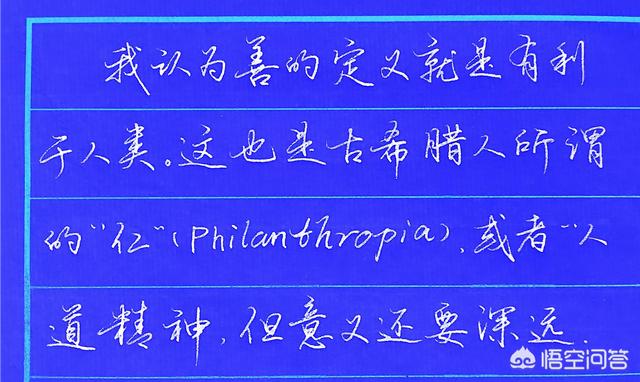 我认为善的定义就是有利
于人类。这也是古希腊人所谓
的“仁”(Philanthropia),或者“人
道精神,但意义还要深远.
悟空问答